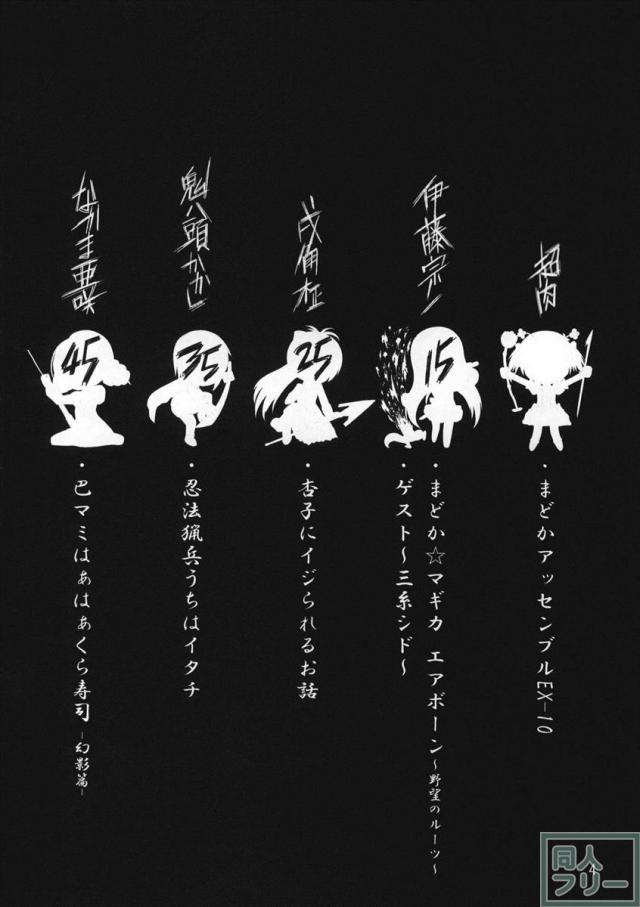 超肉
・まどかアッセンブルEX-10
伊藤宗一
15
・まどか☆マギカ エアボーン~野望のルーツ~
・ゲスト~三糸シド~
25
・杏子にイジられるお話
魁八頭かかし
35
・忍法猟兵うちはイタチ
なかま亜咲
45
・巴マミはぁはぁくら寿司-幻影篇-
4
同人
フリー